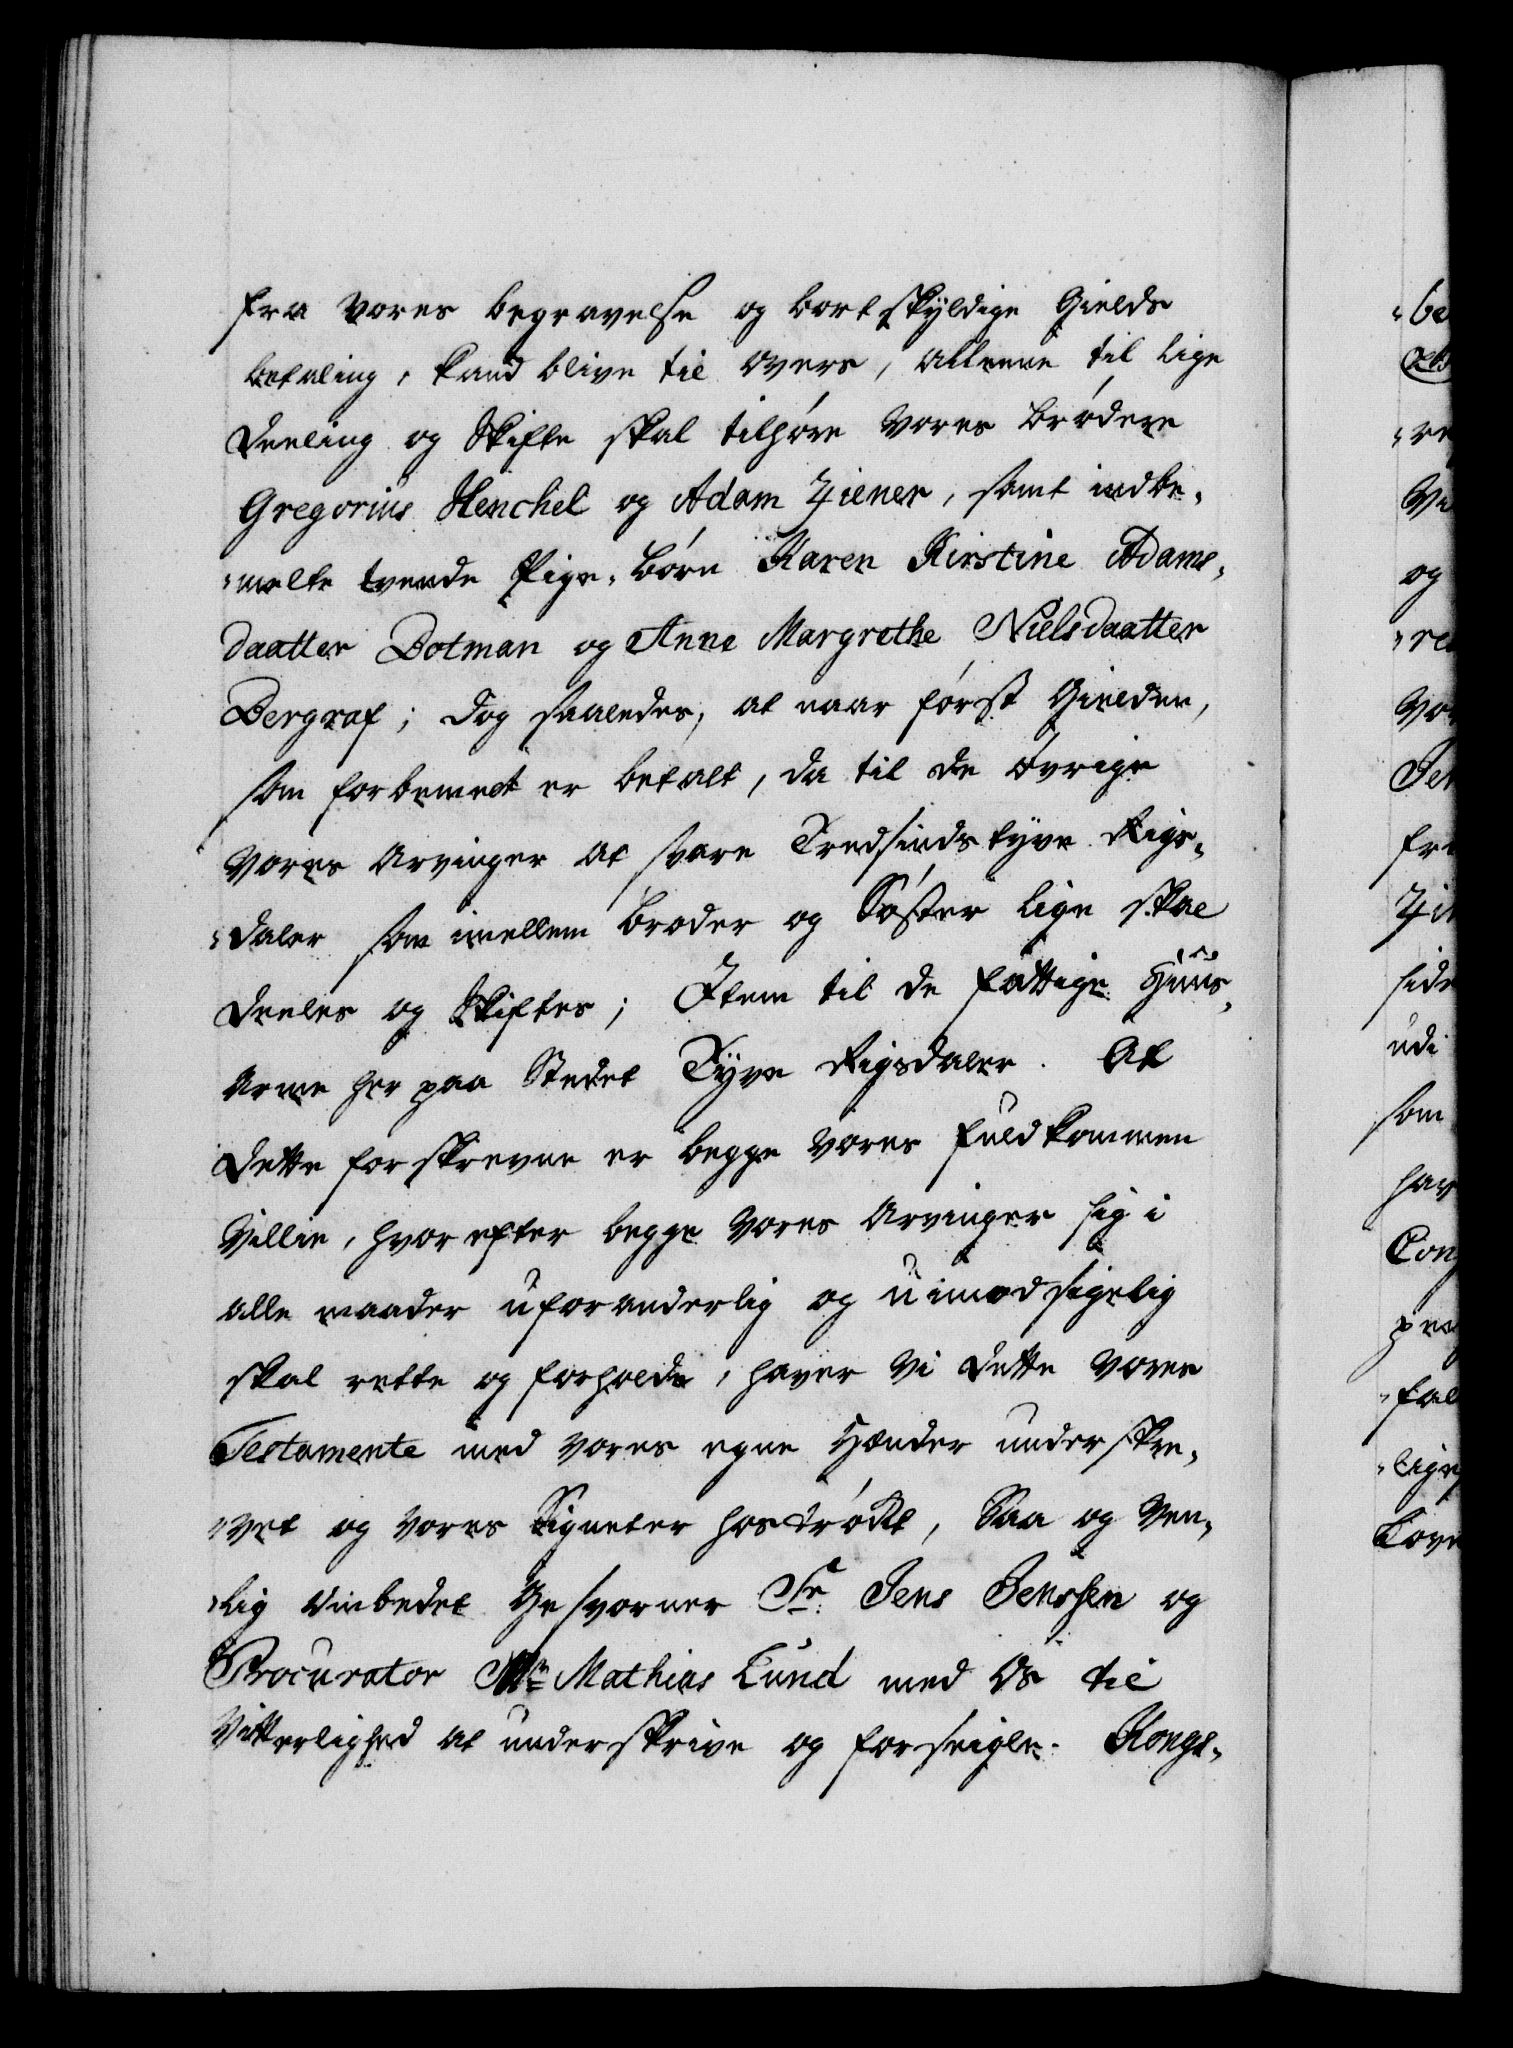 fra vores begravelse og bortskyldige Gields
betaling, kand blive til overs, alleene til lige
Deeling og Skifte skal tilhøre vores brødere
Gregorius Henchel og Adam Ziener, samt indbe-
-melte tvende Pige-børn Karen Kirstine Adams-
daatter Dotman og Anne Margrethe Nielsdaatter
Bergraf; dog saaledes, at naar først Gielden,
som forbemelt er betalt, da til de øvrige
vores Arvinger at svare Tredsindstyve Rigs-
-daler som imellem broder og Søster lige skal
deeles og Skiftes; Item til de fattige Huus-
arme her paa Stedet Tyve Rigsdaler. At
dette forskrevne er begge vores fuldkommen
Villie, hvorefter begge vores Arvinger sig i
alle maader uforanderlig og uimodsigelig
skal rette og forholde, haver vi dette vores
Testamente med vores egne Hænder underskre-
-vet og vores Signeter hostrøkt, Saa og ven-
-lig ombedet Gesvorner Sr. Jens Jenssen og
Procurator Mr. Mathias Lund med Os til
Vitterlighed at underskrive og forseigle. Kongs-